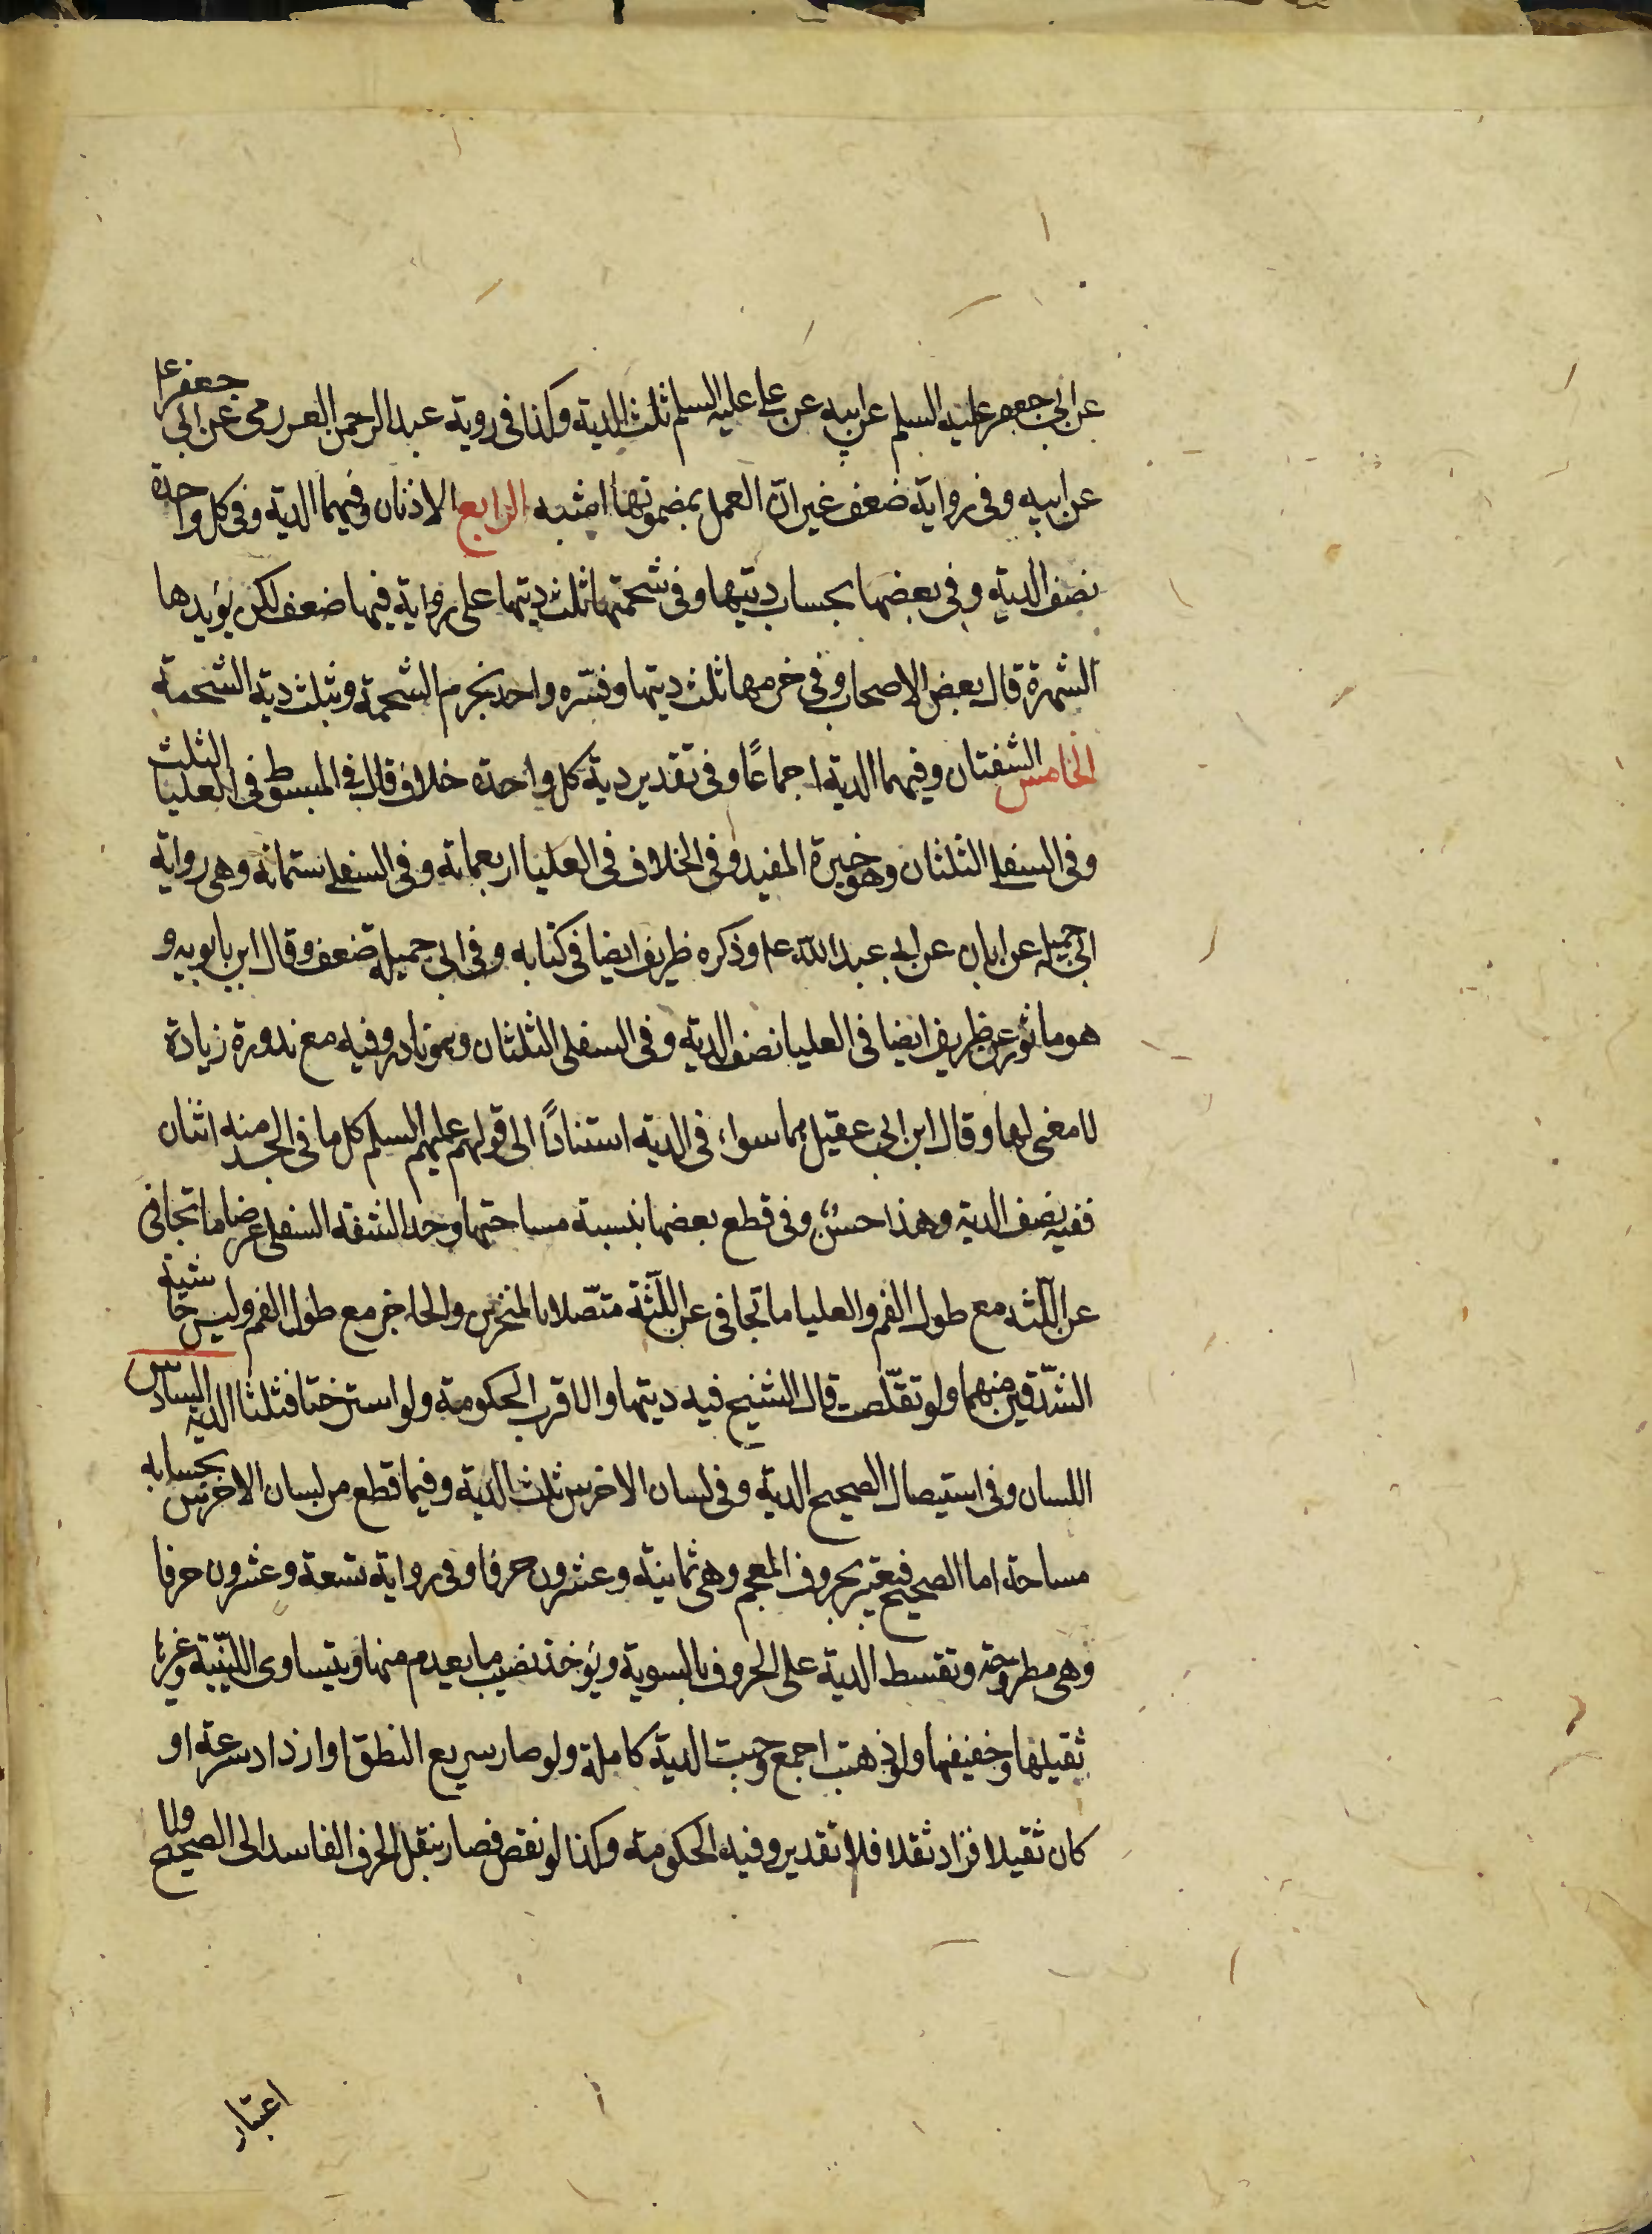 عن ابي جعفر عليه السلم عن ابيه عن علي عليه السلم ثلث الدية وكذا في روية عبد الرحمن العرزمي عن ابي جعفر ع
عن ابيه وفي رواية ضعف غير ان العمل بمضمونها اشبه الرابع الاذنان وفيهما الدية وفي كل واحدة
نصف الدية وفي بعضها بحساب ديتها وفي شحمتها ثلث ديتها على رواية فيها ضعف لكن يؤيدها
الشهرة قال بعض الاصحاب وفي خرمها ثلث ديتها وفسّره واحد بخرم الشحمة وبثلث دية الشحمة
الخامس الشفتان وفيهما الدية اجماعًا وفي تقدير دية كل واحدة خلاف قال في المبسوط في العليا الثلث
وفي السفلى الثلثان وهو خيرة المفيد وفي الخلاف في العليا اربعمائة وفي السفلى ستمائة وهي رواية
ابي جميلة عن ابان عن ابي عبد الله عم وذكره ظريف ايضا في كتابه وفي ابي جميلة ضعف وقال ابن بابويه و
هو ماثور عن ظريف ايضا في العليا نصف الدية وفي السفلى الثلثان وهو نادر وفيه مع ندوره زيادة
لا معنى لها وقال ابن ابي عقيل هما سواء في الدية استنادًا الى قولهم عليهم السلم كل ما في الجسد منه اثنان
ففيه نصف الدية وهذا حسن وفي قطع بعضها بنسبة مساحتها وحد الشفة السفلى عرضا ما تجافى
عن اللثة مع طول الفم والعليا ما تجافى عن اللّثة متّصلا بالمنخرين والحاجز مع طول الفم وليس حاشية
الشّدقين منهما ولو تقلّصت قال الشيخ فيه ديتها والاقرب الحكومة ولو استرختا فثلثا الدية السادس
اللسان وفي استيصال الصحيح الدية وفي لسان الاخرس ثلث الدية وفيما قطع من لسان الاخرس بحسابه
مساحة اما الصحيح فيعتبر بحروف المعجم وهي ثمانية وعشرون حرفا وفي رواية تسعة وعشرون حرفا
وهي مطروحة وتقسط الدية على الحروف بالسوية ويؤخذ نصيب ما يعدم منها ويتساوى اللّينية وغيرها
ثقيلها وخفيفها ولو ذهبت اجمع وجبت الدية كاملة ولو صار سريع النطق او ازداد سرعة او
كان ثقيلا فزاد ثقلا فلا تقدير وفيه الحكومة وكذا لو نقص فصار ينقل الحرف الفاسد الى الصحيح ولا
اعتبار